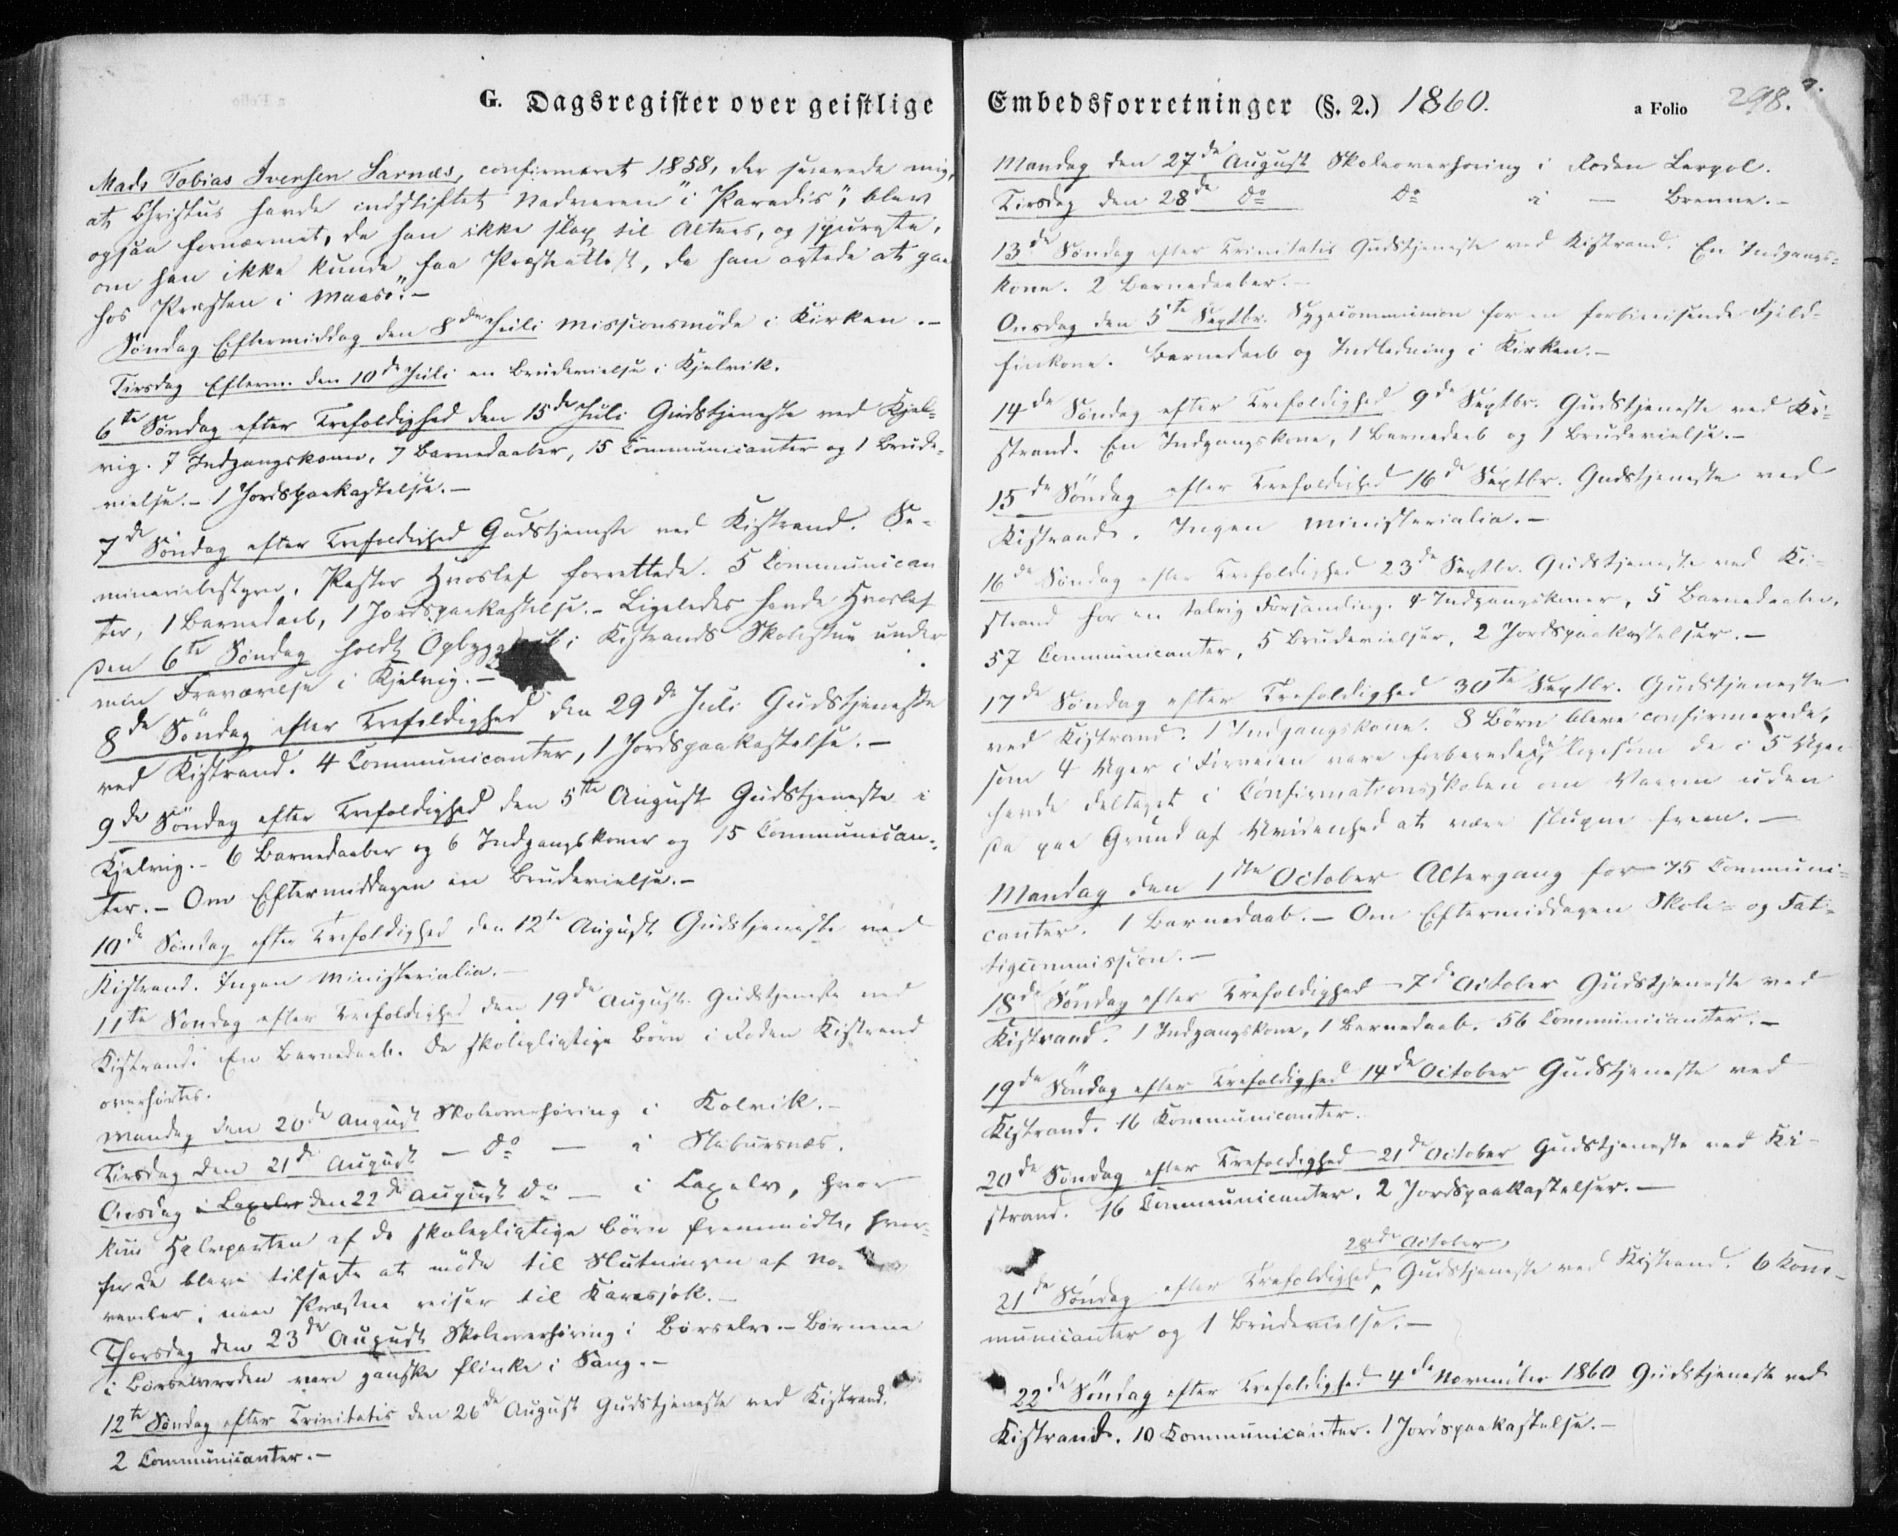 G. Dagsregister over geistlige
Mads Tobias Ivensen Sarnæs, confirmeret 1858, der svarede mig,
at Christus havde indstiftet Nadveren "i Paradis", blev
ogsaa fornærmet, da han ikke slap til Alters, og spurgte,
om han ikke kunde faa Præsteattest, da han agtede at gaa
hos Præsten i Maasø".-
Søndag Eftermiddag den 8de Juli Missionsmøde i Kirken.-
Tirsdag Efterm. den 10de Juli en Brudevielse i Kjelvik.
6te Søndag efter Trefoldighed den 15de Juli Gudstjeneste ved Kjel-
vig. 7 Indgangskoner, 7 Barnedaaber, 15 Communicanter og 1 Brude-
vielse.- 1 Jordspaakastelse.-
7de Søndag efter Trefoldighed Gudstjeneste ved Kistrand. Se-
minariebestyrer, Pastor Hvoslef forrettede. 5 Communican
ter, 1 Barnedaab, 1 Jordspaakastelse.- Ligeledes havde Hvoslef
den 6te Søndag holdt i Kistrands Skolestue under
min Fraværelse i Kjelvig.-
8de Søndag efter Trefoldighed den 29de Juli Gudstjeneste
ved Kistrand. 4 Communicanter, 1 Jordspaakastelse.-
9de Søndag efter Trefoldighed den 5te August Gudstjeneste i
Kjelvig.- 6 Barnedaaber og 6 Indgangskoner og 15 Communican-
ter.- Om Eftermiddagen en Brudevielse.-
10de Søndag efter Trefoldighed den 12te August Gudstjeneste ved
Kistrand. Ingen Ministerialia.-
11te Søndag efter Trefoldighed den 19de August Gudstjeneste ved
Kistrand. En Barnedaab. De skolepligtige Børn i Roden Kistrand
overhørtes.
Mandag den 20de August Skoleoverhøring i Kolvik.-
Tirsdag den 21de August - Do - i Stabursnæs.
Onsdag i Laxelv den 22de August Do - i Laxelv, hvor
kun Halvparten af de skolepligtige Børn fremmødte, hvor-
for de bleve tilsagte at møde til Slutningen af No-
vember, naar Præsten reiser til Karasjok.-
Thorsdag den 23de August Skoleoverhøring i Børselv.- Børnene
i Børselvroden vare ganske flinke i Sang.-
12te Søndag efter Trinitatis den 26de August Gudstjeneste ved Kistrand.
2 Communicanter.-
Embedsforretninger (§. 2.) 1860. a Folio 298.
Mandag den 27de August Skoleoverhøring i Roden Lerpol.
Tirsdag den 28de Do Do i - Brenne.-
13de Søndag efter Trinitatis Gudstjeneste ved Kistrand. En Indgangs-
kone. 2 Barnedaaber.-
Onsdag den 5te Septbr. Sygecommunion for en forbireisende Fjeld-
finkone. Barnedaab og Indledning i Kirken.-
14de Søndag efter Trefoldighed 9de Septbr. Gudstjeneste ved Ki-
strand. En Indgangskone, 1 Barnedaab og 1 Brudevielse.-
15de Søndag efter Trefoldighed 16de Septbr. Gudstjeneste ved
Kistrand. Ingen Ministerialia.-
16de Søndag efter Trefoldighed 23de Septbr. Gudstjeneste ved Ki-
strand for en talrig Forsamling. 4 Indgangskoner, 5 Barnedaaber,
57 Communicanter, 5 Brudevielser, 2 Jordspaakastelser.-
17de Søndag efter Trefoldighed 30te Septbr. Gudstjeneste
ved Kistrand. 1 Indgangskone. 8 Børn bleve confirmerede,
som 4 Uger i Forveien vare forberedede, ligesom de i 5 Uger
havde deltaget i Confirmationsskolen om Vaaren uden
da paa Grund af Uvidenhed at være slupne frem.-
Mandag den 1ste October Altergang for 75 Communi-
canter. 1 Barnedaab.- Om Eftermiddagen Skole- og Fat-
tigcommission.-
18de Søndag efter Trefoldighed 7de October Gudstjeneste ved
Kistrand. 1 Indgangskone, 1 Barnedaab. 56 Communicanter.-
19de Søndag efter Trefoldighed 14de October Gudstjeneste ved
Kistrand. 16 Kommunicanter.
20de Søndag efter Trefoldighed 21de October Gudstjeneste ved Ki-
strand. 16 Communicanter. 2 Jordspaakastelser.-
28de October
21de Søndag efter Trefoldighed Gudstjeneste ved Kistrand. 6 Kom-
municanter og 1 Brudevielse.-
22de Søndag efter Trefoldighed 4de November 1860 Gudstjeneste ved
Kistrand. 10 Communicanter. 1 Jordspaakastelse.-